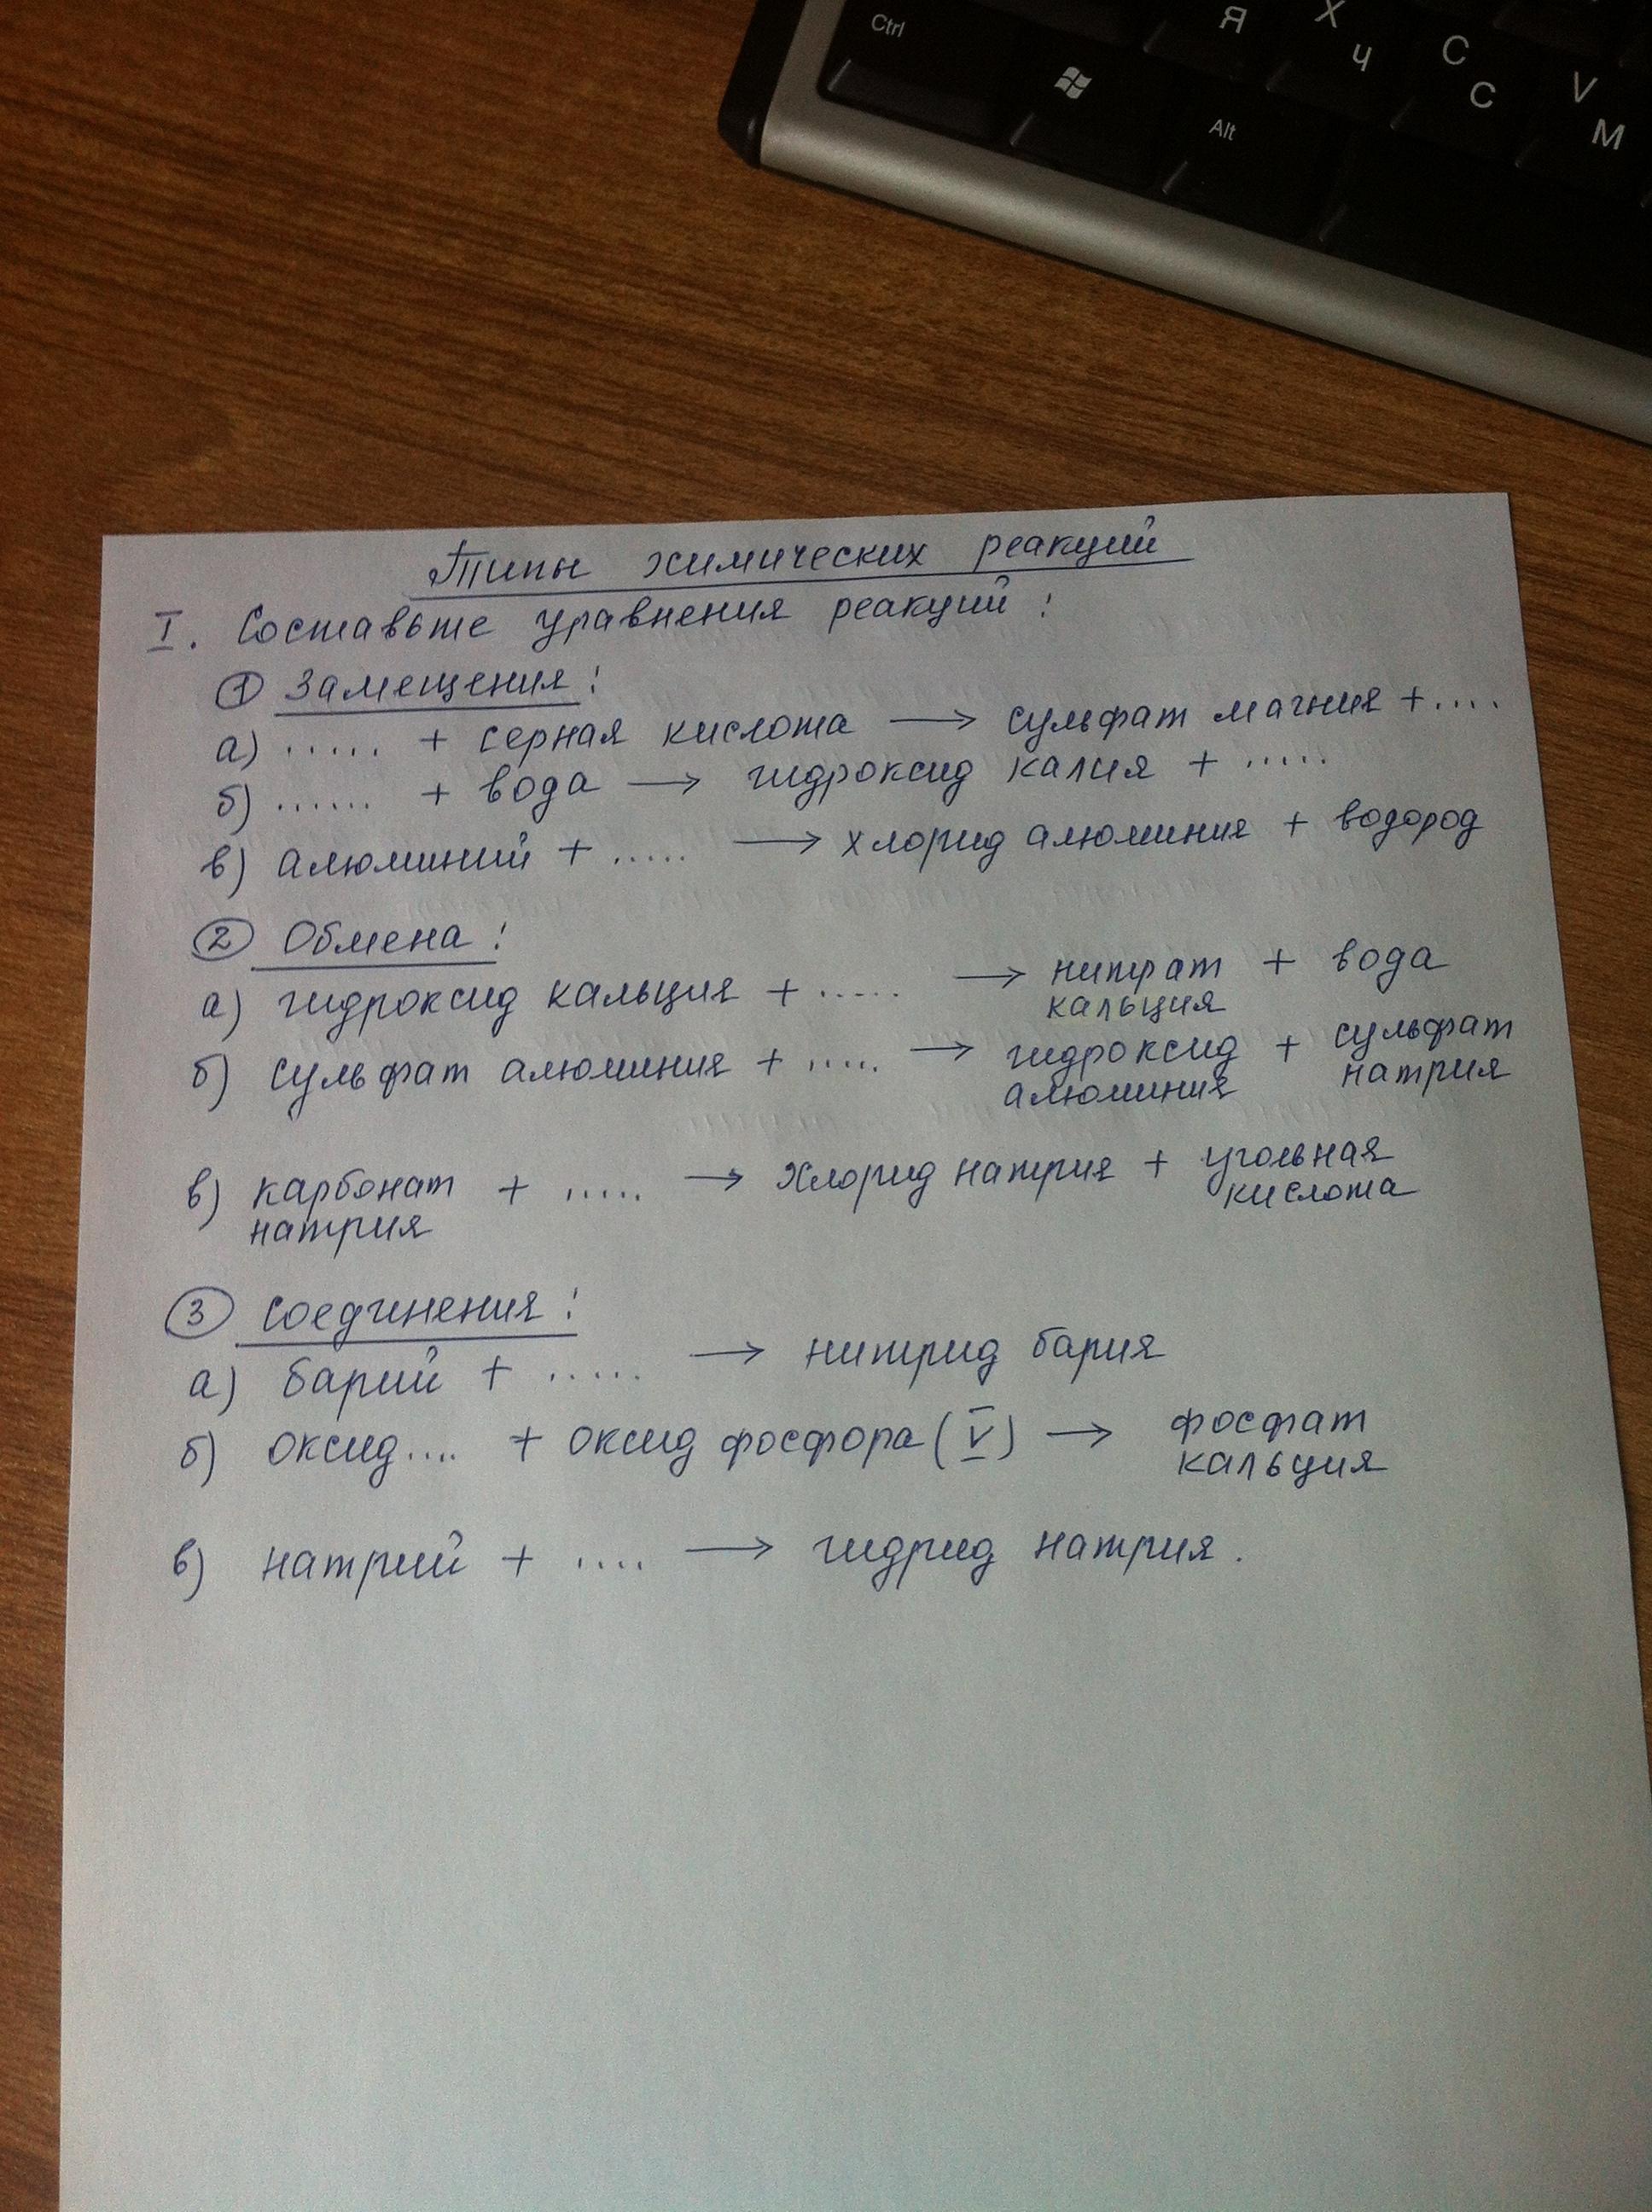 Ctrl
Alt
Я
Х
Ч
С
С
V
М
Типы химических реакций
I. Составьте уравнения реакций:
① Замещения:
а) ..... + серная кислота → сульфат магния + ....
б) ...... + вода → гидроксид калия + .....
в) алюминий + ..... → хлорид алюминия + водород
② Обмена:
а) гидроксид кальция + ..... → нитрат + вода
кальция
б) сульфат алюминия + ..... → гидроксид + сульфат
алюминия натрия
в) карбонат + ..... → хлорид натрия + угольная
натрия кислота
③ Соединения:
а) барий + ..... → нитрид бария
б) оксид .... + оксид фосфора (V) → фосфат
кальция
в) натрий + .... → гидрид натрия.